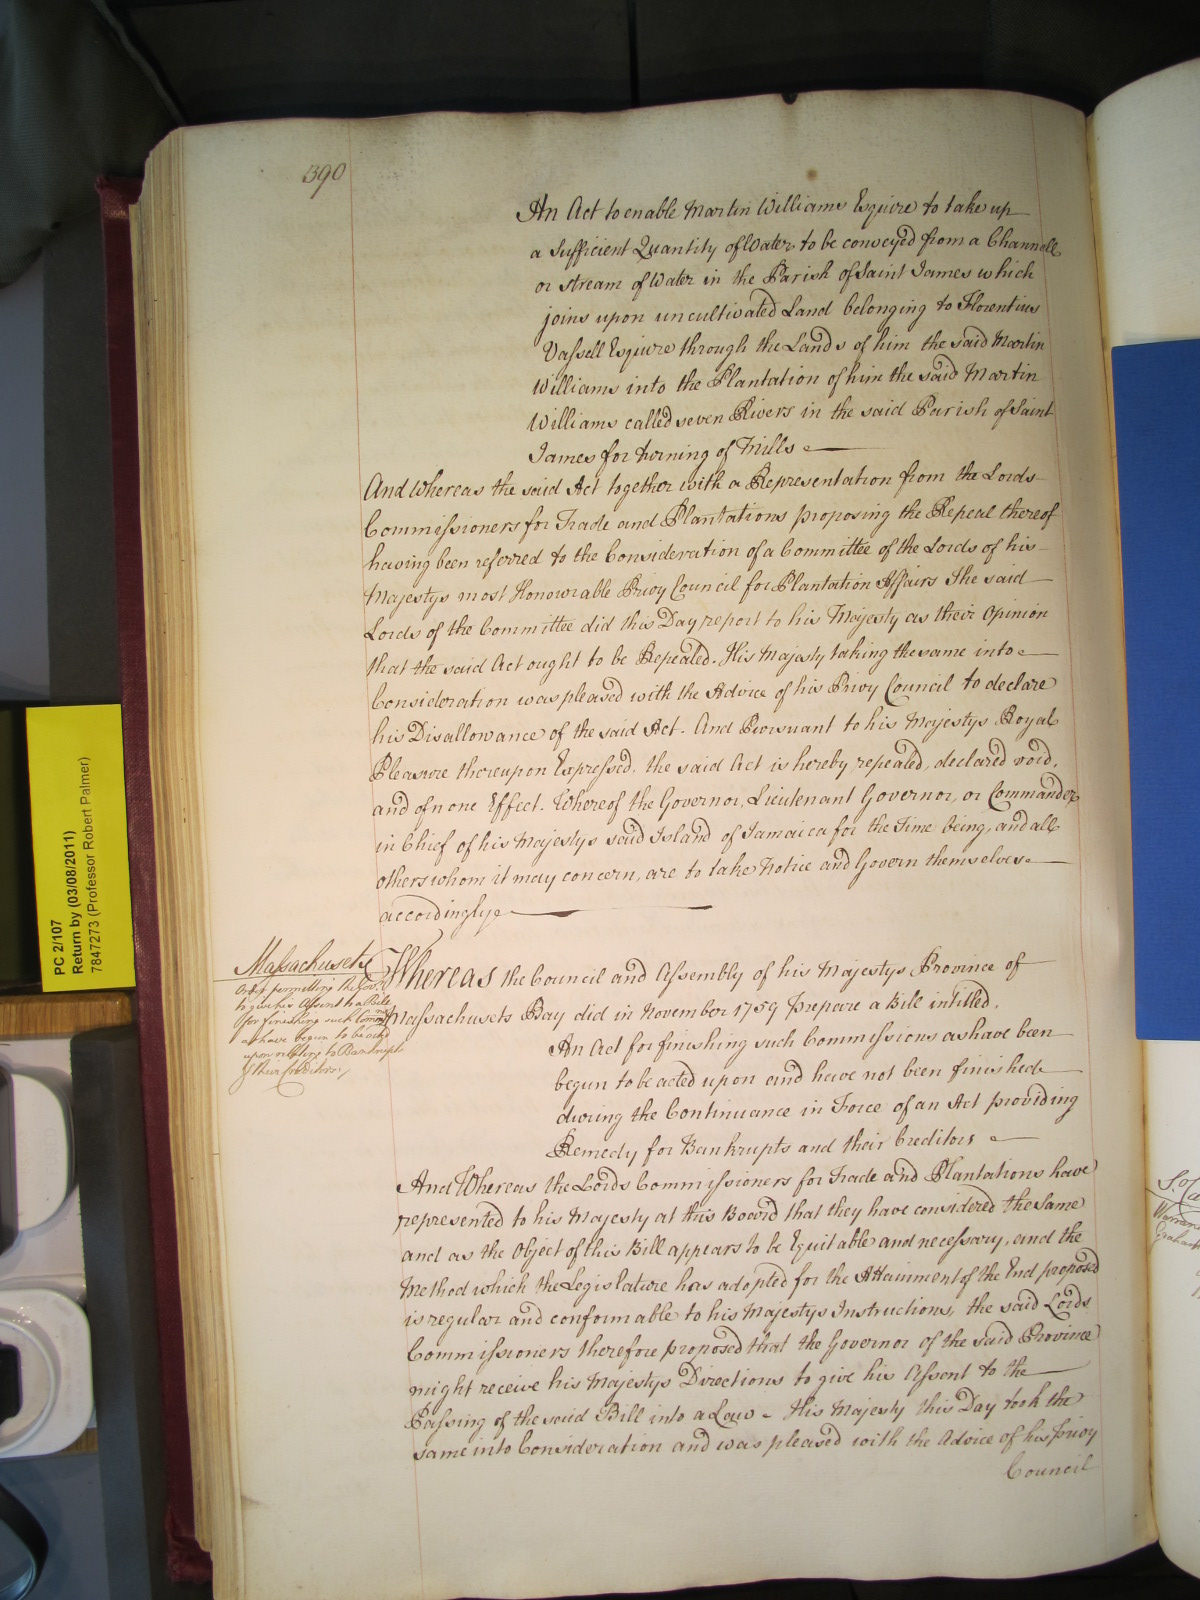 390
An Act to enable Martin Williams Esquire to take up
a sufficient Quantity of Water to be conveyed from a Channell
or stream of Water in the Parish of Saint James which
joins upon uncultivated Land belonging to Florentius
Vassell Esquire through the Lands of him the said Martin
Williams into the Plantation of him the said Martin
Williams called seven Rivers in the said Parish of Saint
James for turning of Mills
And Whereas the said Act together with a Representation from the Lords
Commissioners for Trade and Plantations proposing the Repeal thereof
having been referred to the Consideration of a Committee of the Lords of his
Majestys most Honourable Privy Council for Plantation Affairs The said
Lords of the Committee did this Day report to his Majesty as their Opinion
that the said Act ought to be Repealed. His Majesty taking the same into
Consideration was pleased with the Advice of his Privy Council to declare
his Disallowance of the said Act. And Pursuant to his Majestys Royal
Pleasure thereupon Expressed, the said Act is hereby repealed, declared void,
and of none Effect. Whereof the Governor, Lieutenant Governor, or Commander
in Chief of his Majestys said Island of Jamaica for the Time being, and all
others whom it may concern, are to take Notice and Govern themselves
accordingly
Massachusets
Order permitting the Govr.
to give his Assent to a Bill
for finishing such Commns.
as have begun to be acted
upon relating to Bankrupts
& their Creditors
Whereas the Council and Assembly of his Majestys Province of
Massachusets Bay did in November 1759 Prepare a Bill intitled,
An Act for finishing such Commissions as have been
begun to be acted upon and have not been finished
during the Continuance in Force of an Act providing
Remedy for Bankrupts and their Creditors
And Whereas the Lords Commissioners for Trade and Plantations have
represented to his Majesty at this Board that they have considered the same
and as the Object of this Bill appears to be Equitable and necessary, and the
Method which the Legislature has adopted for the Attainment of the End proposed
is regular and conformable to his Majestys Instructions, the said Lords
Commissioners therefore proposed that the Governor of the said Province
might receive his Majestys Directions to give his Assent to the
Passing of the said Bill into a Law. His Majesty this Day took the
same into Consideration and was pleased with the Advice of his Privy
Council
PC 2/107
Return by (03/08/2011)
7847273 (Professor Robert Palmer)